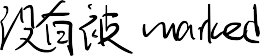 没有被 marked